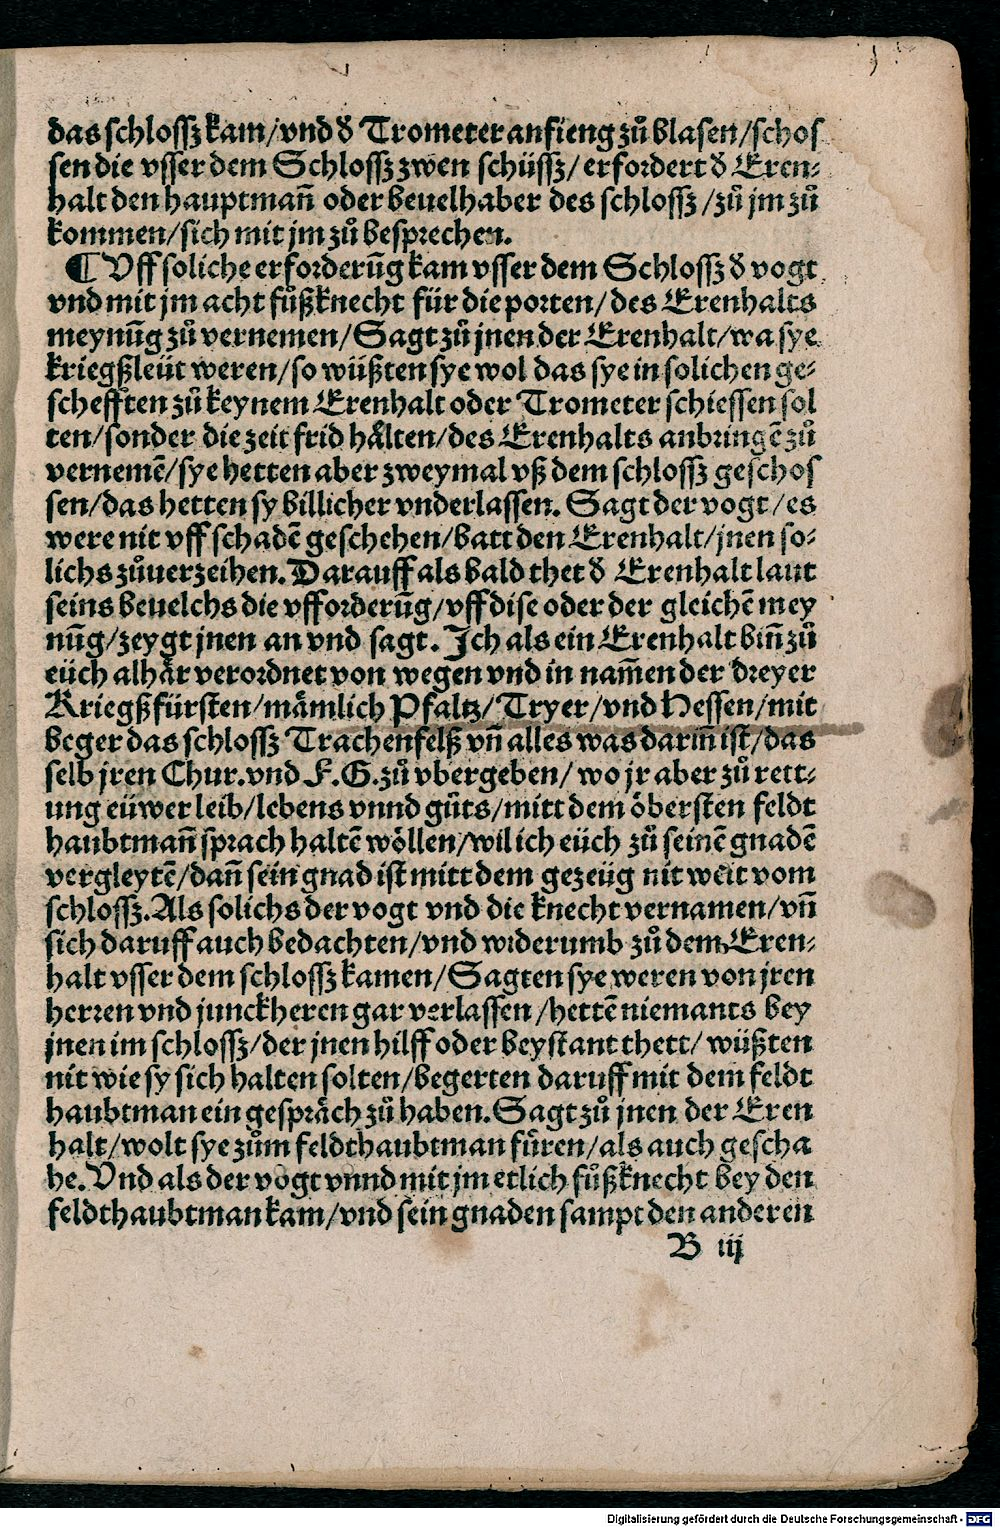 das schlossz kam/vnd d̕ Trometer anfieng zů blasen/schos
sen die vsser dem Schlossz zwen schüssz/ erfordert d̕ Eren⸗
halt den hauptmañ oder beuelhaber des schlossz /zů jm zů
kommen/sich mit jm zů besprechen.
¶ Vff soliche erforderūg kam vsser dem Schlossz d̕ vogt
vnd mit jm acht fůßknecht für die porten/ des Erenhalts
meynūg zů vernemen/Sagt zů jnen der Erenhalt/wa sye
kriegßleüt weren/so wüßten sye wol das sye in solichen ge⸗
schefften zů keynem Erenhalt oder Trometer schiessen sol
ten/sonder die zeit frid hålten/des Erenhalts anbringē zů
vernemē/sye hetten aber zweymal vß dem schlossz geschos
sen/das hetten sy billicher vnderlassen. Sagt der vogt /es
were nit vff schadē geschehen/batt den Erenhalt/jnen so⸗
lichs zůuerzeihen. Darauff als bald thet d̕ Erenhalt laut
seins beuelchs die vfforderūg/vff dise oder der gleichē mey
nūg/zeygt jnen an vnd sagt. Ich als ein Erenhalt biñ zů
eüch alhär verordnet von wegen vnd in nam̄en der dreyer
Kriegßfürsten/mämlich Pfaltz/ Tryer/vnd Hessen/mit
beger das schlossz Trachenfelß vñ alles was darin̄ ist/das
selb jren Chur.vnd F.G.zů vbergeben/ wo jr aber zů rett⸗
ung eüwer leib/lebens vnnd gůts/mitt dem öbersten feldt
haubtmañ sprach haltē wöllen/wil ich eüch zů seinē gnadē
vergleytē/dañ sein gnad ist mitt dem gezeüg nit weit vom
schlossz.Als solichs der vogt vnd die knecht vernamen/vñ
sich daruff auch bedachten/vnd widerumb zů dem Eren⸗
halt vsser dem schlossz kamen/Sagten sye weren von jren
herren vnd junckheren gar verlassen /hettē niemants bey
jnen im schlossz/der jnen hilff oder beystant thett/ wüßten
nit wie sy sich halten solten/begerten daruff mit dem feldt
haubtman ein gespräch zů haben.Sagt zů jnen der Eren
halt/wolt sye zům feldthaubtman füren/als auch gescha
he.Vnd als der vogt vnnd mit jm etlich fůßknecht bey den
feldthaubtman kam/vnd sein gnaden sampt den anderen
B iij
Digitalisierung gefördert durch die Deutsche Forschungsgemeinschaft - DFG